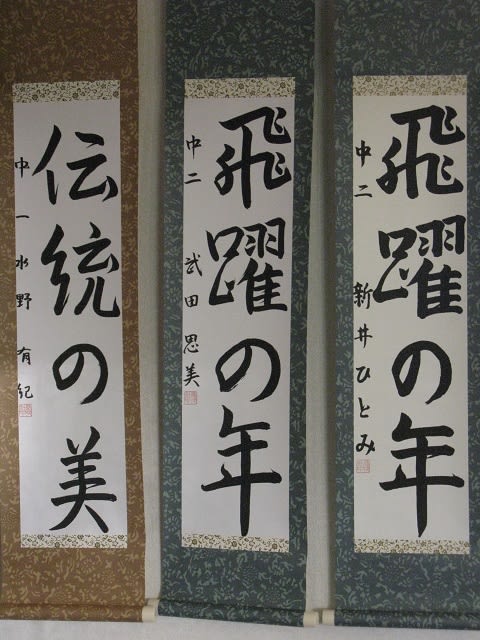 飛躍の年
中二 新井ひとみ
飛躍の年
中二 武田思美
伝統の美
中一 水野有紀